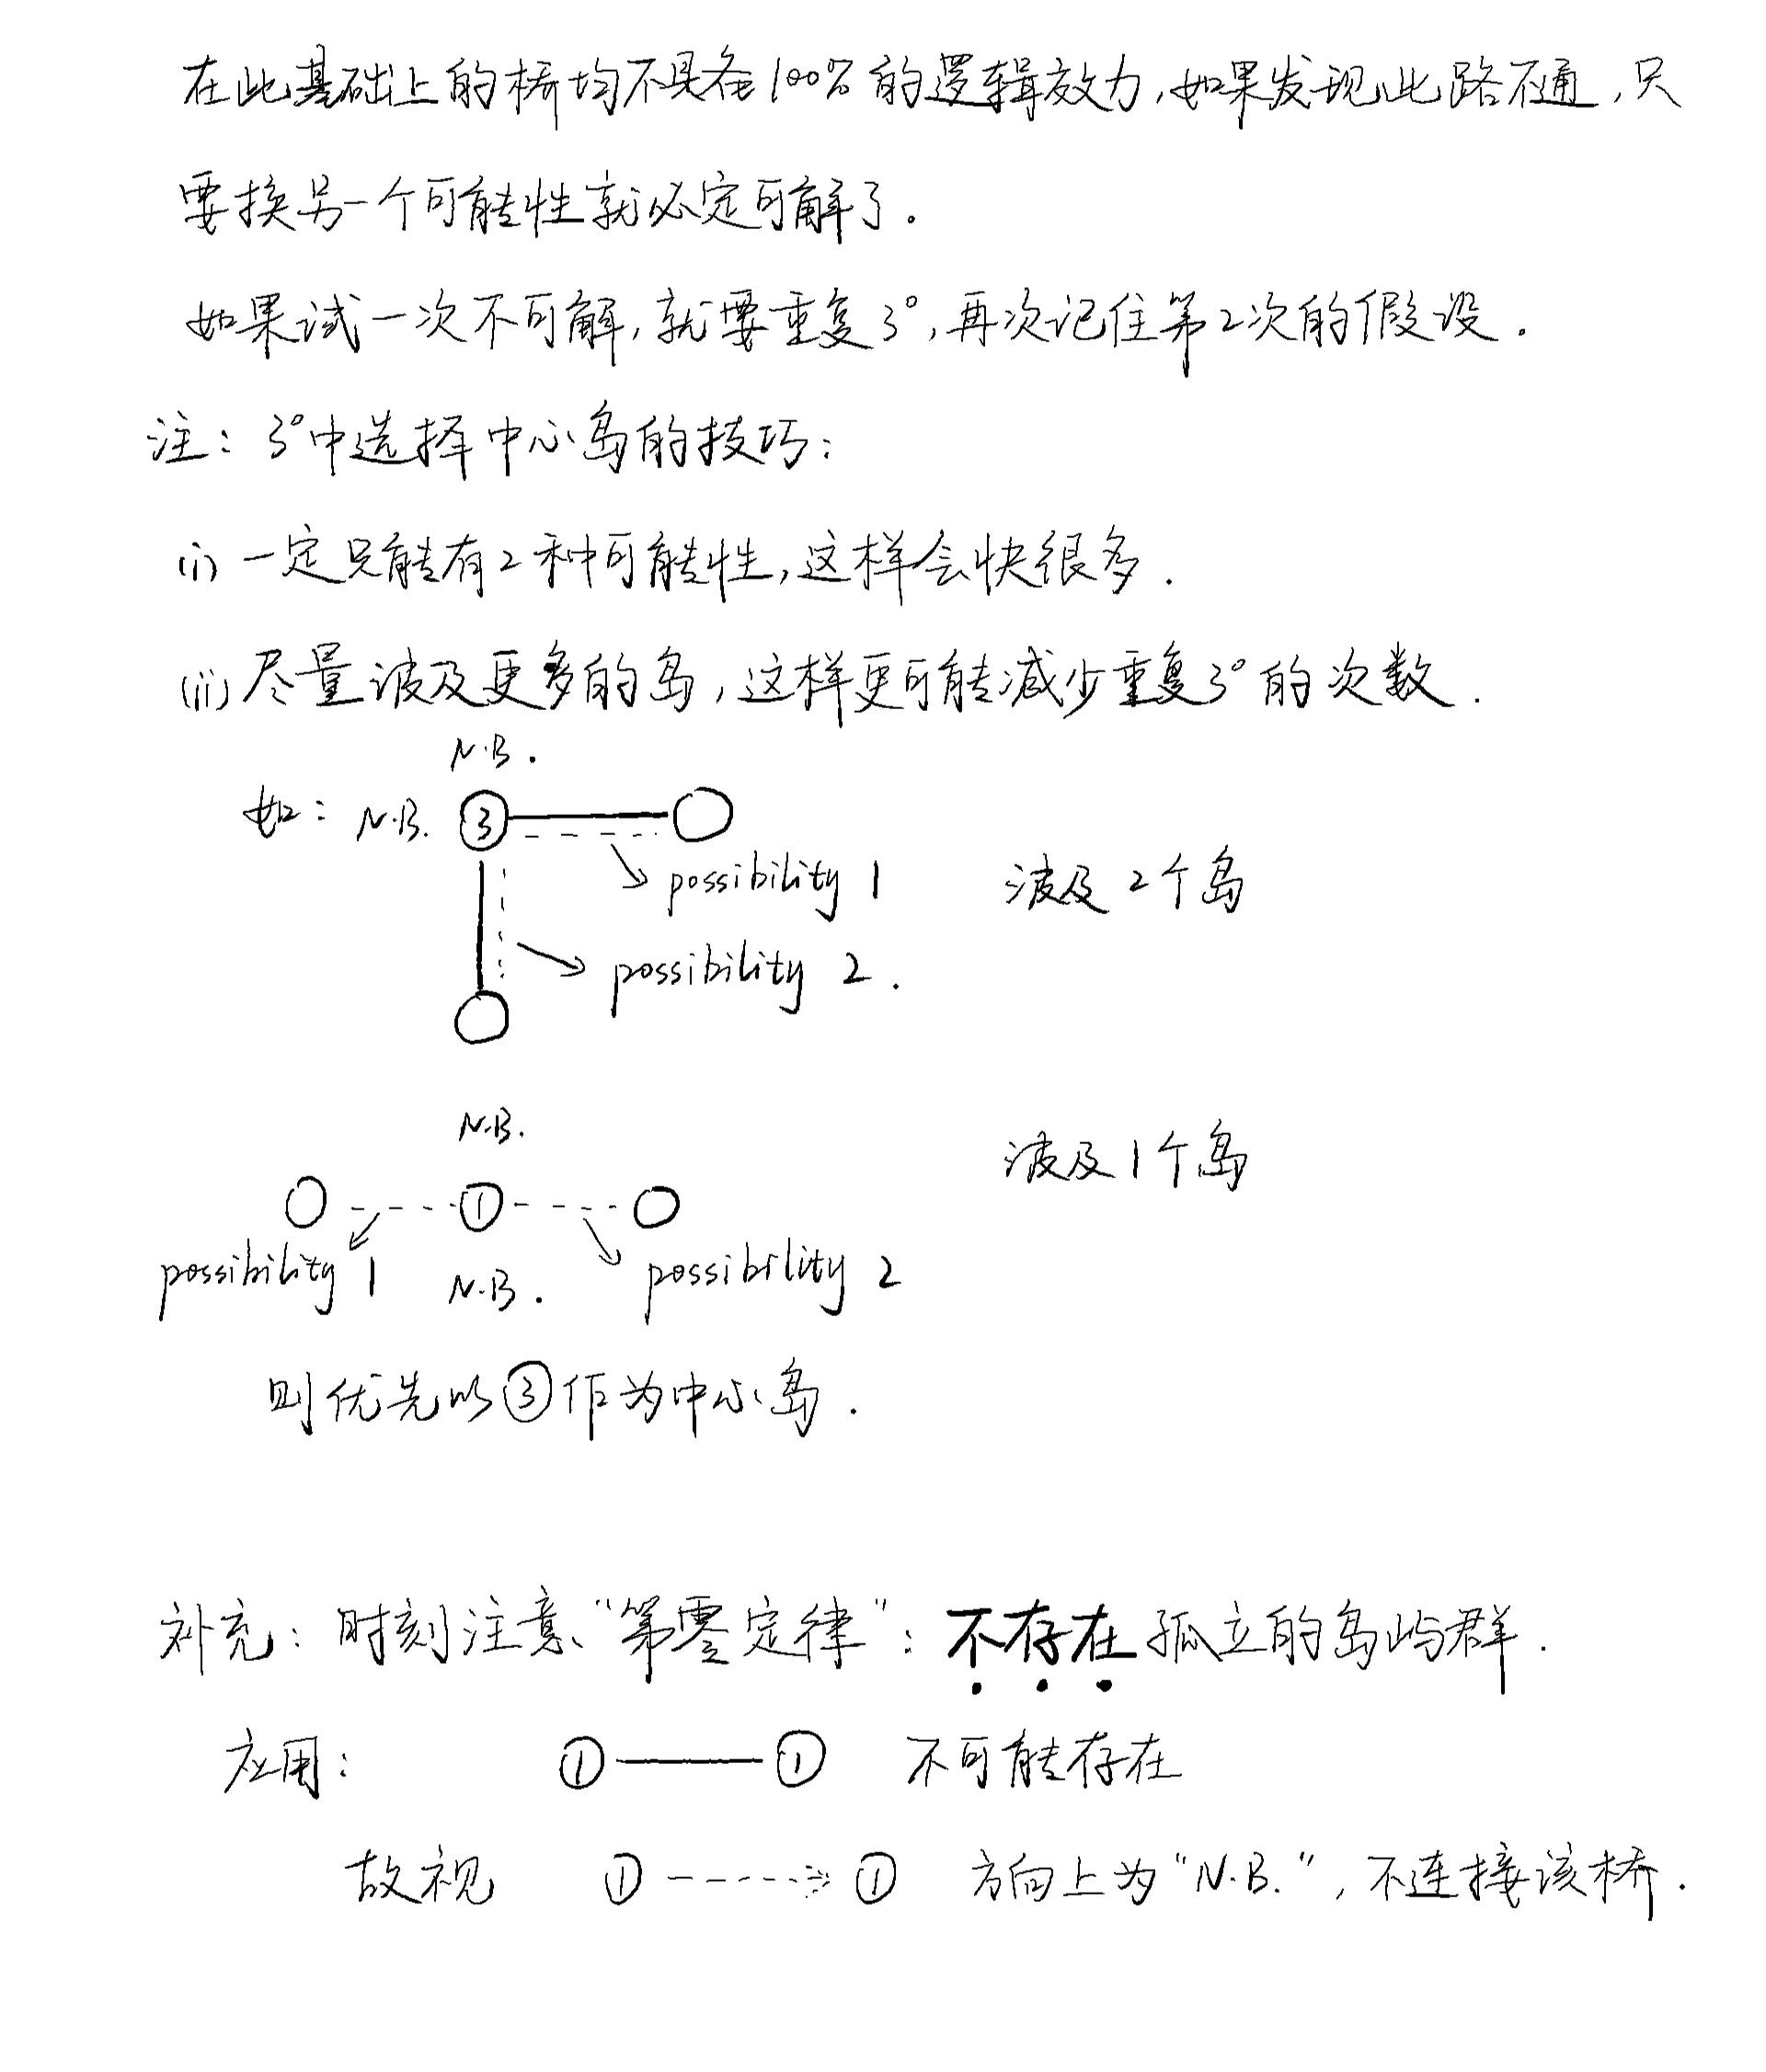 在此基础上的桥均不具备100%的逻辑效力,如果发现此路不通,只
要换另一个可能性就必定可解了.
如果试一次不可解,就要重复3°,再次记住第2次的假设.
注: 3°中选择中心岛的技巧:
(i) 一定只能有2种可能性,这样会快很多.
(ii) 尽量波及更多的岛,这样更可能减少重复3°的次数.
N.B.
如: N.B. ③
possibility 1 波及2个岛
possibility 2.
N.B.
波及1个岛
①
possibility 1 N.B. possibility 2
则优先以③作为中心岛.
补充: 时刻注意“第零定律”: 不存在孤立的岛屿群.
应用: ① ① 不可能存在
故视 ① ① 方向上为“N.B.”, 不连接该桥.